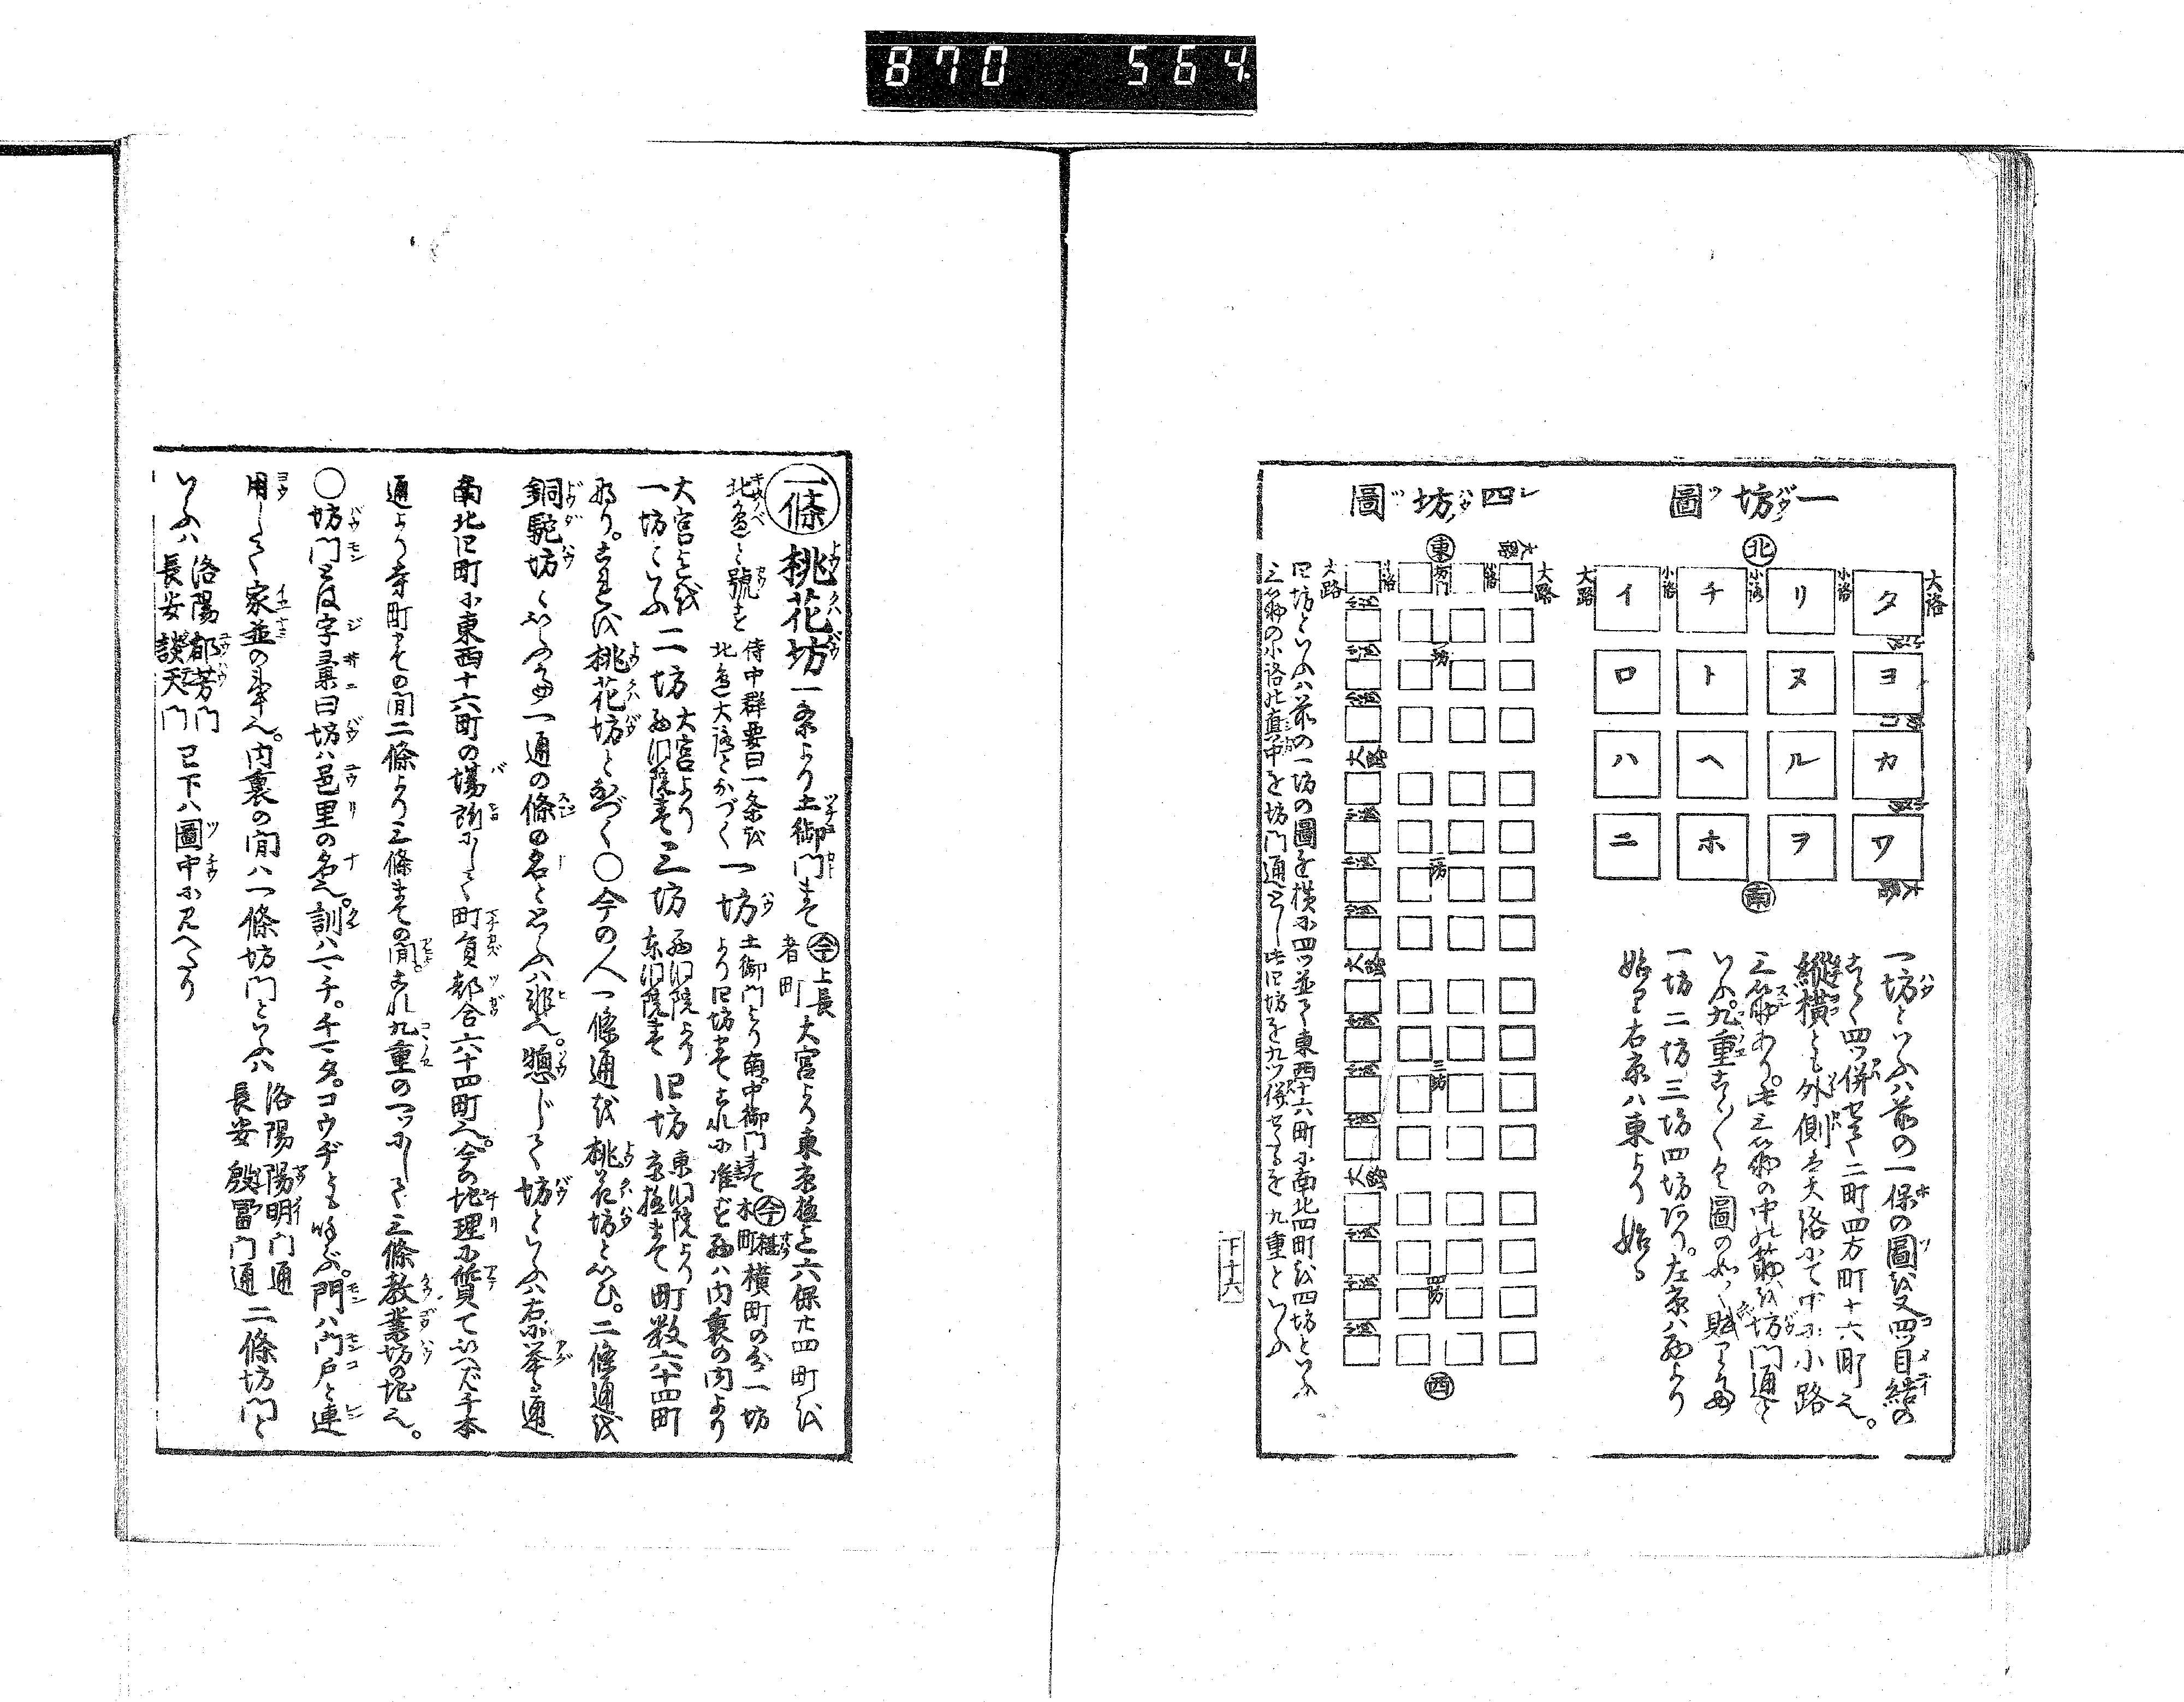 870 564
一坊圖
北
大路
小路
小路
小路
大路
タ リ チ イ
ヨ ヌ ト ロ
カ ル ヘ ハ
ワ ヲ ホ ニ
南
大路
一坊といふハ前の一保の圖を又四ツ目結の
ことく四ツ併せて二町四方町十六町也。
縦横とも外側は大路にて中に小路
三筋あり。此三筋の中の筋を坊門通と
いふ。九重ことことく圖の如く
一坊二坊三坊四坊あり。左京ハ西より
始り右京ハ東より始る
四坊圖
東
大路
坊門
大路
一坊
大路
二坊
大路
三坊
大路
四坊
西
四坊といふハ前の一坊の圖を横に四ツ並て東西十六町に南北四町を四坊といふ
三筋の小路の真中を坊門通とし此四坊を九ツ併せたるを九重といふ
下十六
一條 桃花坊 一条より土御門まで 今上長者町 大宮より東京極迄六保廿四町を
北邊と號す 侍中群要曰一条を北邊大路となづく 一坊 土御門より南中御門まで 今椹木町 横町の分一坊より四坊までこれに准ず西ハ内裏の内より
大宮迄を一坊といふ 二坊 大宮より西洞院まで 三坊 西洞院より東洞院まで 四坊 東洞院より京極まで 町数六十四町
なり。これを桃花坊となづく○今の人一條通を桃花坊といひ。二條通を
銅駝坊といふ一通の條の名と思ふハ非也。惣じて坊といふハ右に挙る通
南北四町に東西十六町の場所にして町員都合六十四町也。今の地理に賀ていへバ千本
通より寺町までの間二條より三條までの間これ九重の一ツにして三條教業坊の地也。
○坊門とは字彙曰坊ハ邑里の名也。訓ハマチ。チマタ。コウヂとも呼ぶ。門ハ門戸と連
用して家並の事也。内裏の間ハ一條坊門といふハ 洛陽陽明門通 長安殷冨門通 二條坊門と
いふハ 洛陽郁芳門 長安談天門 已下ハ圖中に見へたり